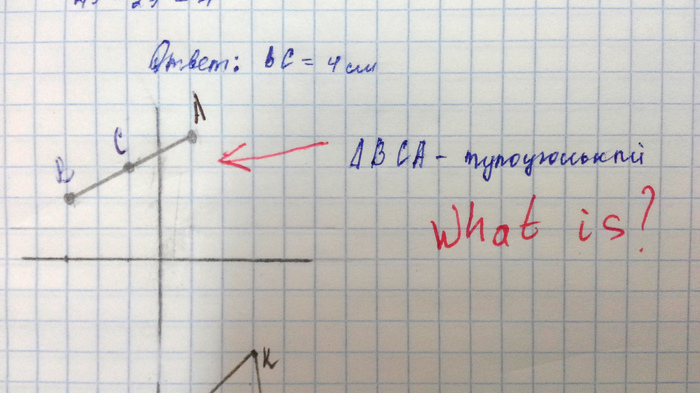 Ответ: BC = 4 см
A
C
B
ΔBCA - тупоугольный
What is?
K